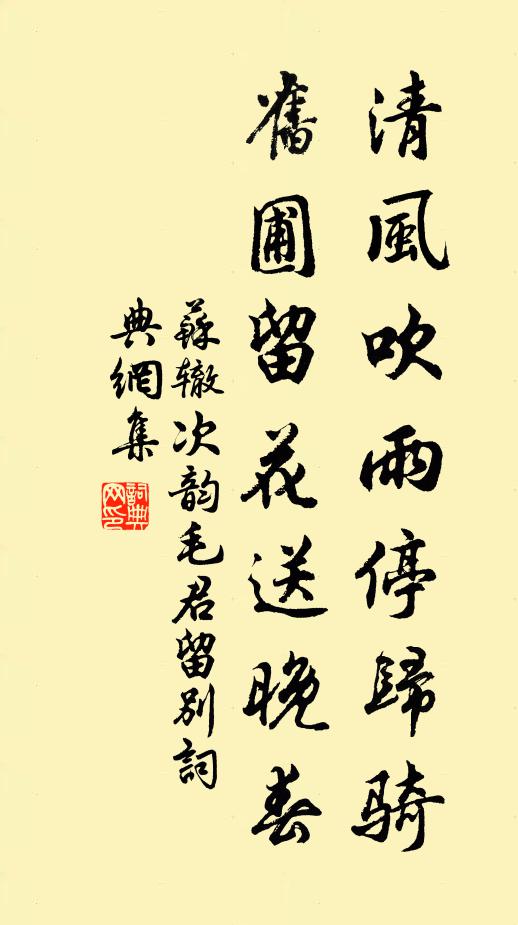 清風吹雨停歸骑
舊圃留花送晚春
蘇辙次韵毛君留別詞
典網集
詞典网印